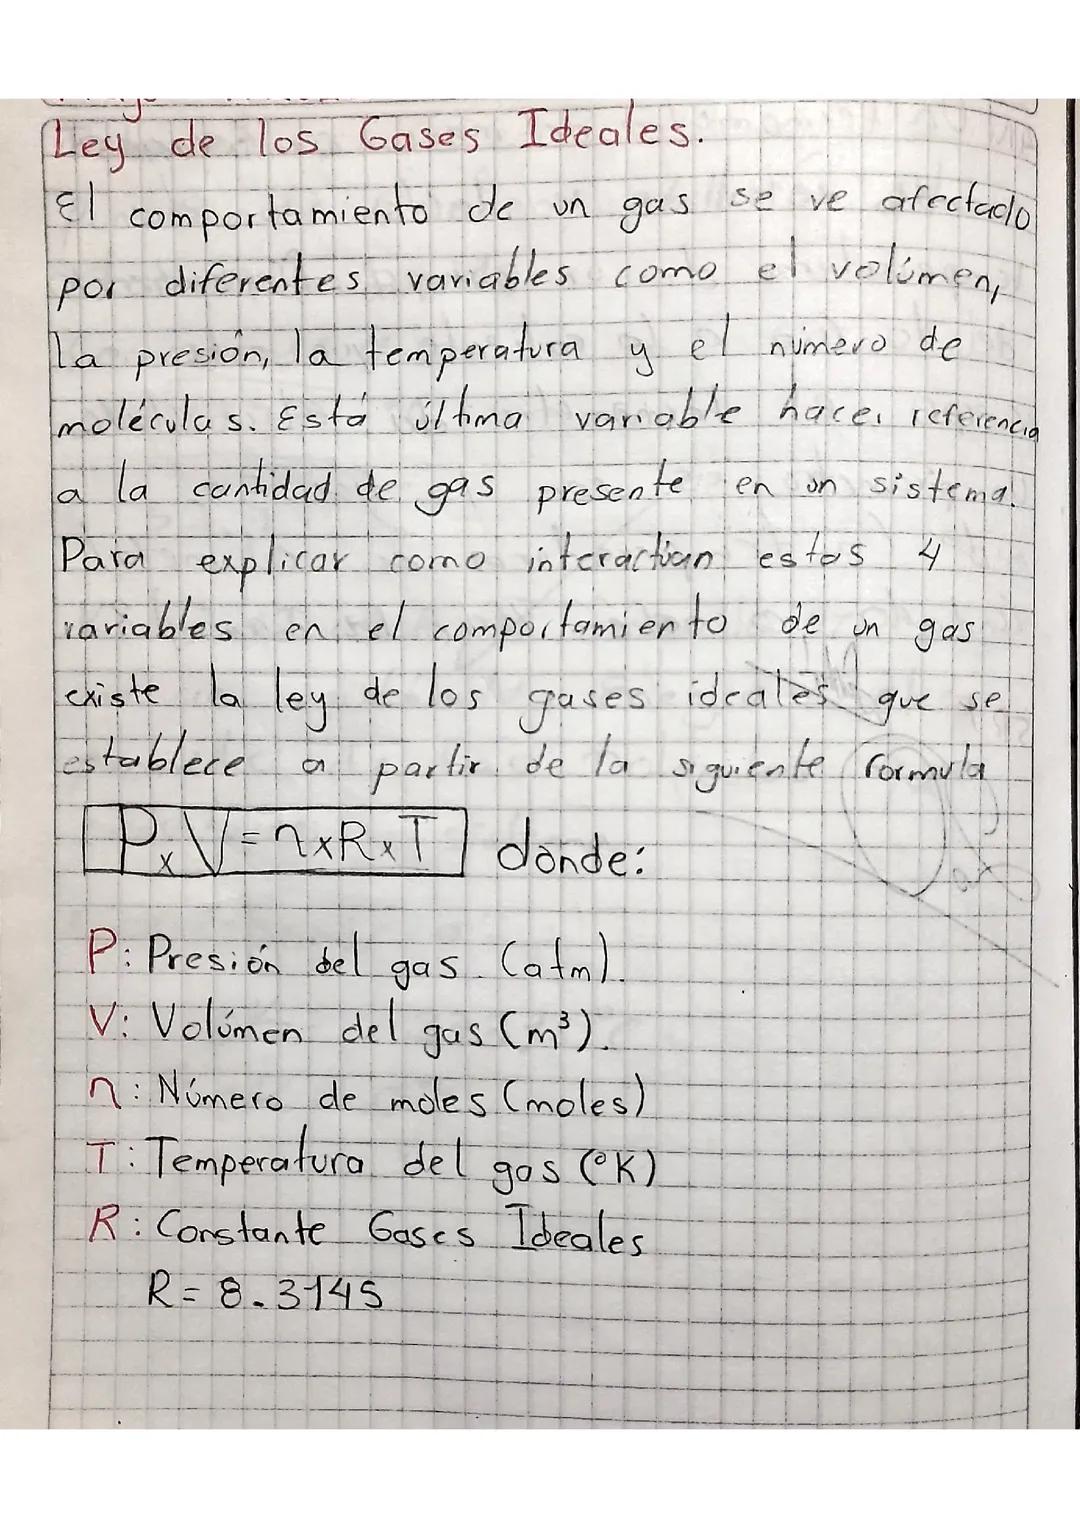 Ley de los Gases Ideales.
El comportamiento de un gas se ve afectado
por diferentes variables como el volúmen,
la presión, la temperatura y el número de
moléculas. Está última variable hace referencia
a la cantidad de gas presente en un sistema.
Para explicar como interactúan estas 4
variables en el comportamiento de un gas
existe la ley de los gases ideales que se
establece a partir de la siguiente formula
PxV=nxRxT donde:
P: Presión del gas (atm).
V: Volúmen del gas (m³).
n: Número de moles (moles)
T: Temperatura del gas (°K)
R: Constante Gases Ideales
R= 8.3145